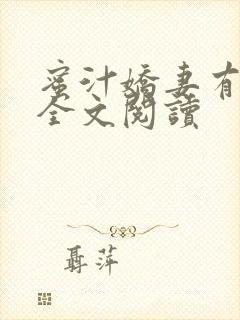 蜜汁嬌妻有
全文閱讀
聶萍